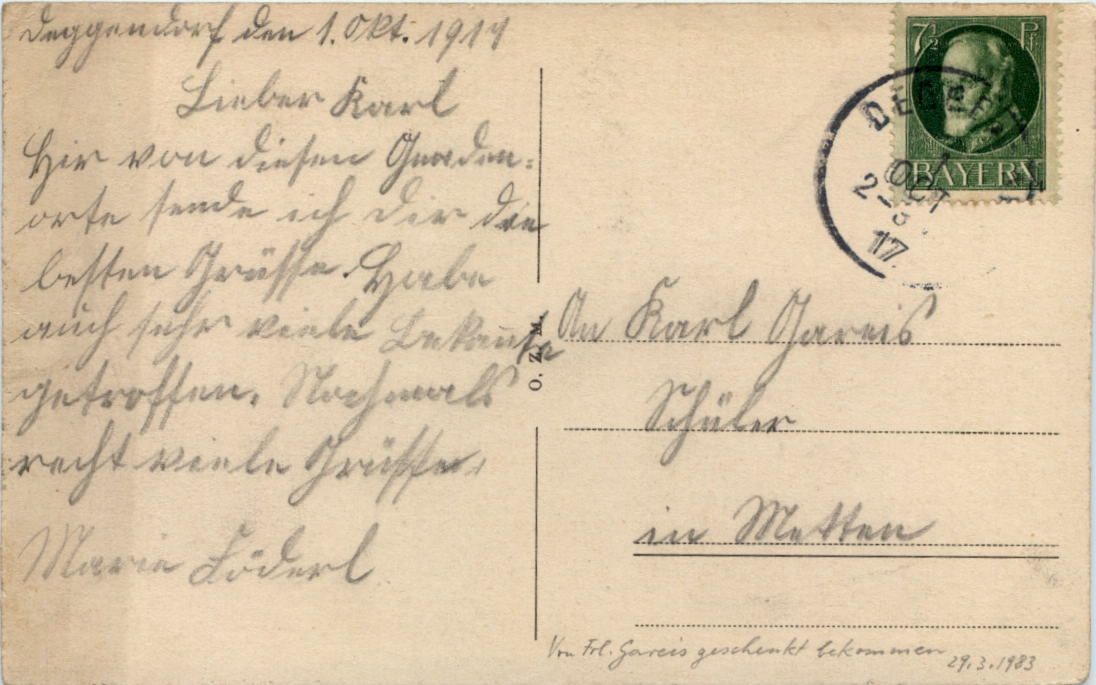 Deggendorf den 1. Okt. 1917
Lieber Karl
Hir von diesen Gnaden-
orte sende ich dir die
besten Grüsse. Habe
auch sehr viele Bekannte
getroffen. Nochmals
recht viele Grüsse.
Marie Löderl
7½ Pf
BAYERN
OKT
17
O. Z. M.
An Karl Gareis
Schüler
in Metten
Von Frl. Gareis geschenkt bekommen
29.3.1983